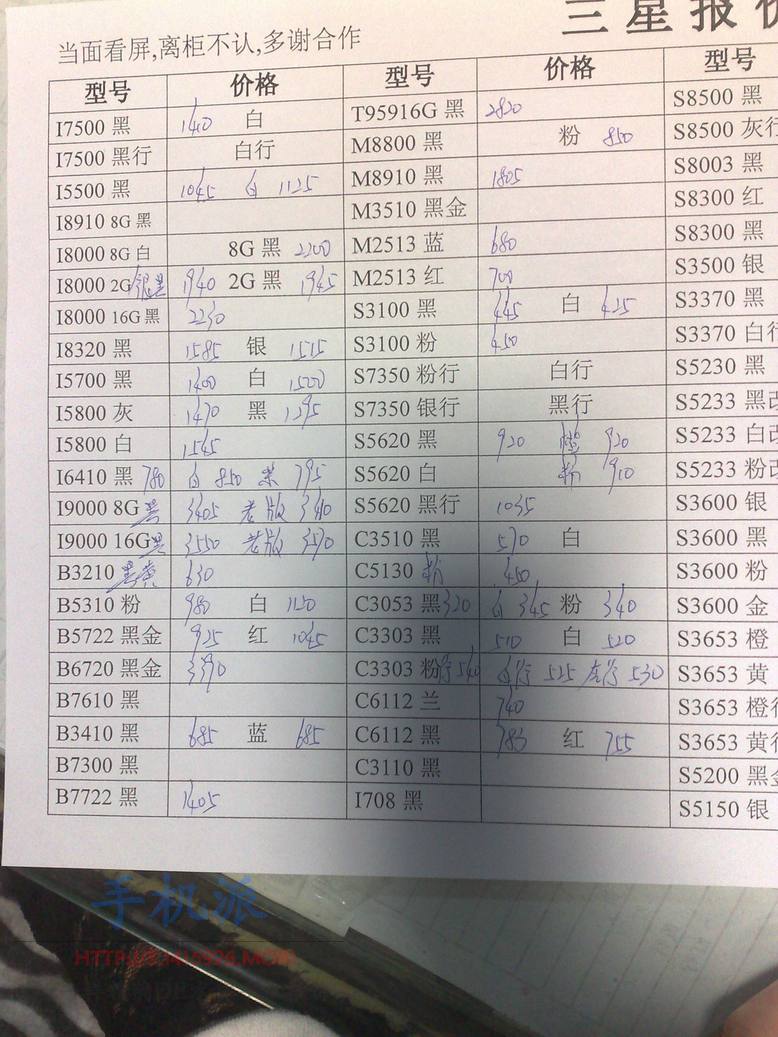 三星报价
当面看屏,离柜不认,多谢合作
型号 价格 型号 价格 型号
I7500 黑 1410 白 T95916G 黑 2820 S8500 黑
I7500 黑行 白行 M8800 黑 粉 850 S8500 灰行
I5500 黑 1045 白 1125 M8910 黑 1805 S8003 黑
I8910 8G 黑 M3510 黑金 S8300 红
I8000 8G 白 8G 黑 2200 M2513 蓝 680 S8300 黑
I8000 2G 银黑 1940 2G 黑 1945 M2513 红 700 S3500 银
I8000 16G 黑 2230 S3100 黑 445 白 425 S3370 黑
I8320 黑 1585 银 1515 S3100 粉 450 S3370 白行
I5700 黑 1400 白 1500 S7350 粉行 白行 S5230 黑
I5800 灰 1470 黑 1295 S7350 银行 黑行 S5233 黑改
I5800 白 1545 S5620 黑 920 橙 920 S5233 白改
I6410 黑 780 白 850 795 S5620 白 粉 910 S5233 粉改
I9000 8G 黑 3405 老版 S5620 黑行 1035 S3600 银
I9000 16G 黑 3550 老版 3570 C3510 黑 570 白 S3600 黑
B3210 黑黄 630 C5130 粉 450 S3600 粉
B5310 粉 980 白 1120 C3053 黑 320 白 345 粉 340 S3600 金
B5722 黑金 925 红 1045 C3303 黑 510 白 520 S3653 橙
B6720 黑金 3390 C3303 粉行 540 白行 525 行 530 S3653 黄
B7610 黑 C6112 兰 740 S3653 橙行
B3410 黑 685 蓝 685 C6112 黑 785 红 755 S3653 黄行
B7300 黑 C3110 黑 S5200 黑金
B7722 黑 1405 I708 黑 S5150 银
手机派